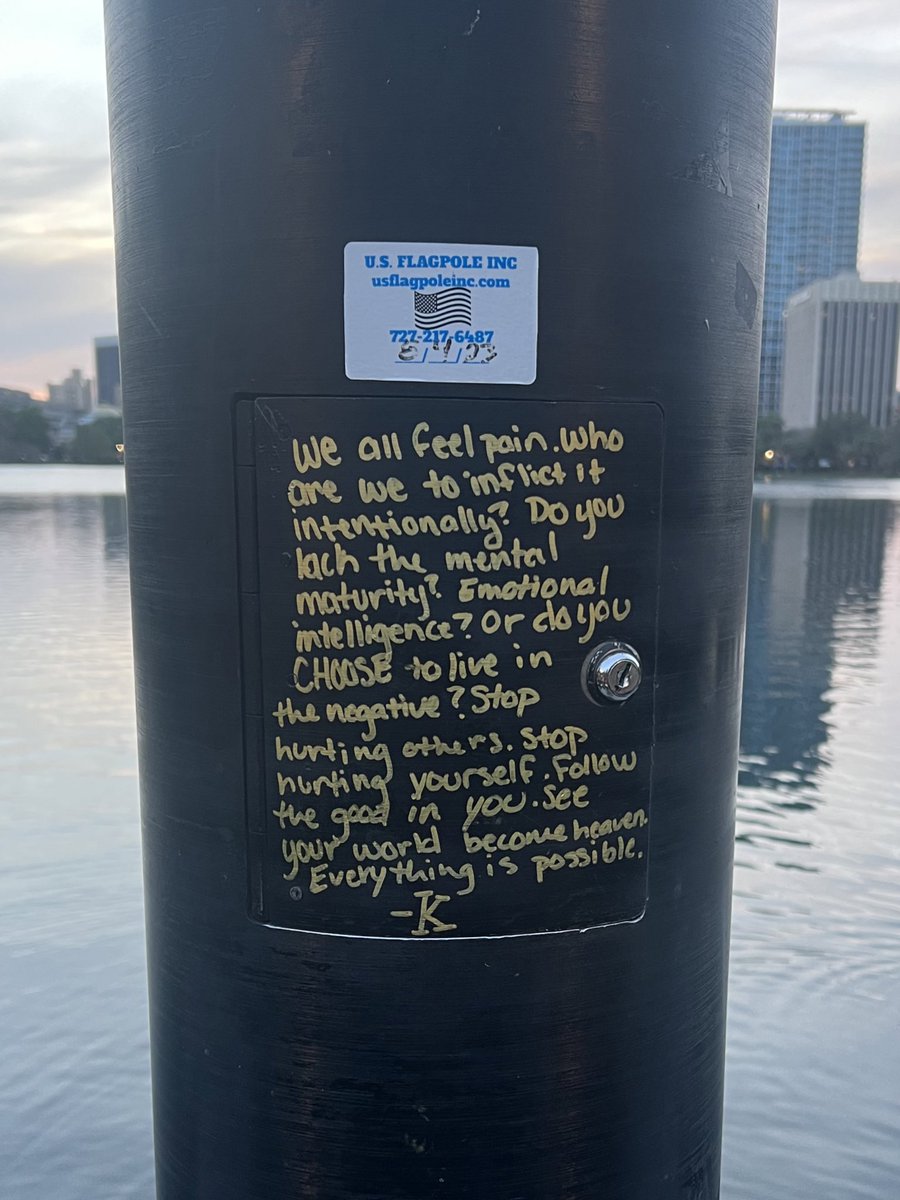 U.S. FLAGPOLE INC
usflagpoleinc.com
727-217-6487
We all feel pain. Who
are we to inflict it
intentionally? Do you
lack the mental
maturity? Emotional
intelligence? Or do you
CHOOSE to live in
the negative? Stop
hurting others. Stop
hurting yourself. Follow
the good in you. See
your world become heaven.
Everything is possible.
-K